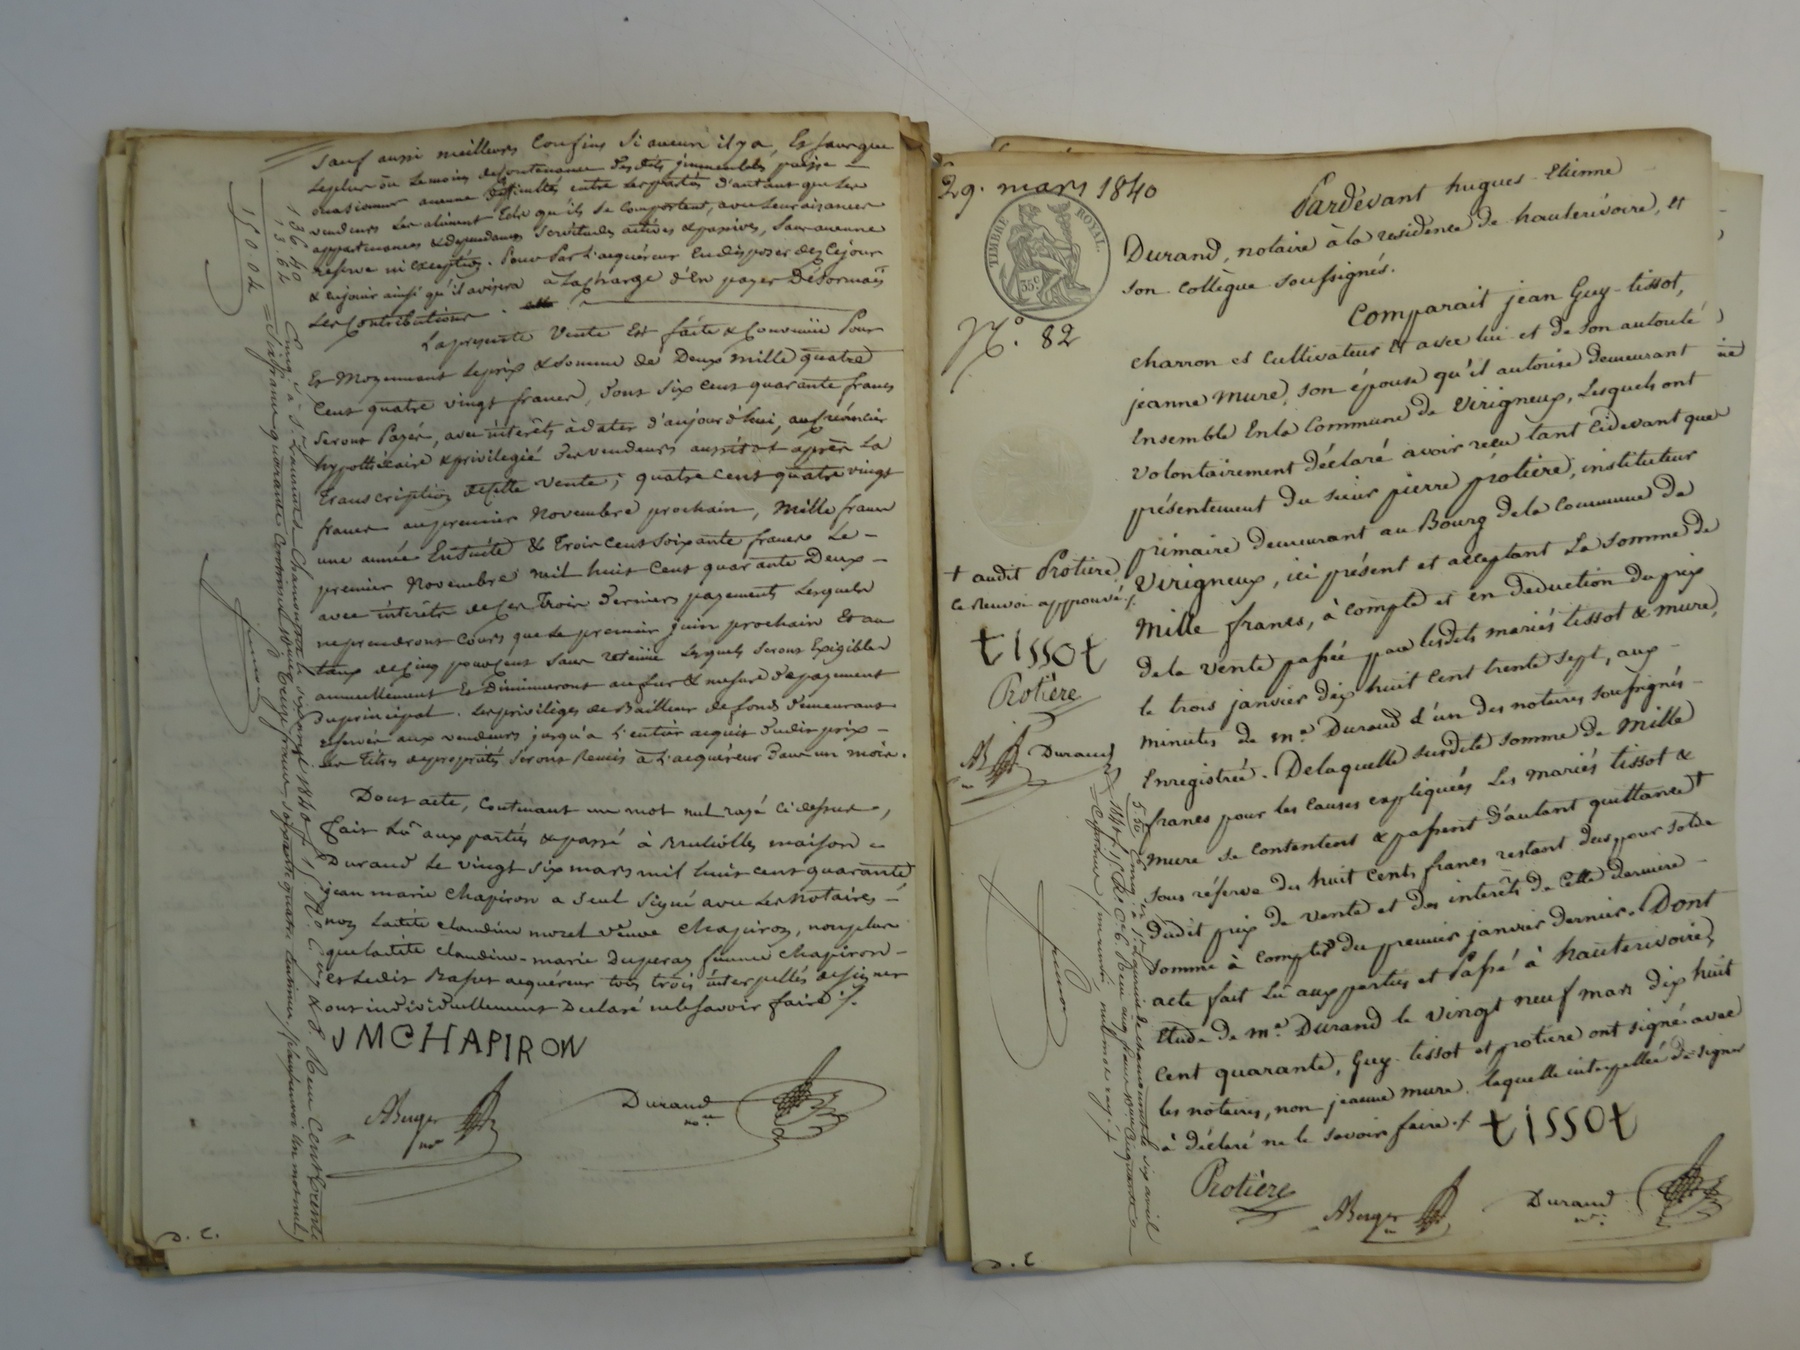 Sauf aussi meilleurs Confins si aucun il y a, Et sans que
Le plus ou Le moins de Contenance desdits immeubles puisse
occasionner aucune difficultés entre les parties d'autant que les
vendeurs Les aliènent tels qu'ils se Comportent, avec Leurs aisances
appartenances & dépendances Servitudes actives & passives, Sans aucune
réserve ni Exception. Pour Par L'acquéreur En disposer dès Ce jour
& en jouir ainsi qu'il avisera à La Charge d'En payer Désormais
Les Contributions.
La présente Vente Est faite & Convenüe Pour
Et Moyennant Le prix & Somme de Deux mille quatre
Cent quatre vingt francs, dont Six Cent quarante francs
Seront Payés, avec intérêts à dater d'aujourd'hui, au créancier
hypothécaire & privilégié des vendeurs aussitot après La
Transcription de Cette Vente; quatre Cent quatre vingt
francs au premier Novembre prochain, Mille francs
une année Ensuite & Trois Cent Soixante francs Le
premier Novembre mil huit Cent quarante Deux
avec intérêts de Ces Trois derniers payements Lesquels
ne prendront Cours que Le premier juin prochain Et au
taux de Cinq pour Cent Sans retenüe Lesquels Seront Exigibles
annuellement Et Diminueront au fur & mesure de payement
Du principal. Les privilèges de Bailleur de fonds demeurant
réservés aux vendeurs jusqu'à L'entier acquit dudit prix
Les titres de propriétés Seront Remis à L'acquéreur dans un mois.
Dont acte, Contenant un mot nul rayé Ci dessus,
fait Lû aux parties & passé à maison
Durand Le vingt Six mars mil huit cent quarante
jean marie Chapiron a Seul Signé avec Les Notaires
non Ladite Claudine morel veuve Chapiron, non plus
que Ladite Claudine-marie Duperay femme Chapiron
et Ledit acquéreur tous trois interpellés de signer
ont individuellement Déclaré ne le Savoir faire ./.
JMCHAPIRON
ABerger
Durand
D. C.
136.42
13.62
150.04
29. mars 1840
TIMBRE ROYAL.
35 c
N.° 82
Pardevant hugues Etienne
Durand, notaire à la residence de hauterivoire, et
son collègue soussignés.
Comparait jean Guy-tissot,
charron et cultivateur Et avec lui et de son autorité
jeanne Mure, son épouse qu'il autorise demeurant
Ensemble En la Commune de Virigneux, Lesquels ont
Volontairement déclaré avoir reçu tant Cidevant que
présentement du sieur pierre protière, instituteur
primaire demeurant au Bourg de la Commune de
Virigneux, ici présent et acceptant La Somme de
Mille francs, à compte et en déduction du prix
de la Vente passée par lesdits mariés tissot & mure,
le trois janvier dix huit cent trente sept, aux
minutes de me. Durand L'un des notaires soussignés
Enregistrée. De laquelle susdite somme de Mille
francs pour les causes expliquées Les mariés tissot &
Mure se contentent & passent d'autant quittance †
sous réserve des huit cents francs restant dus pour solde
dudit prix de vente et des intérêts de Cette dernière
somme à compter du premier janvier dernier. Dont
acte fait Lû aux parties et Passé à hauterivoire,
Etude de me. Durand le vingt neuf mars dix huit
cent quarante, Guy-tissot et protiere ont signé avec
les notaires, non jeanne mure laquelle interpellée de signer
à déclaré ne le savoir faire ./. tissot
Protière
ABerger
Durand
† audit Protière
Ce Renvoi approuvé ./.
tissot
Protière
AB
Durand
D. C.